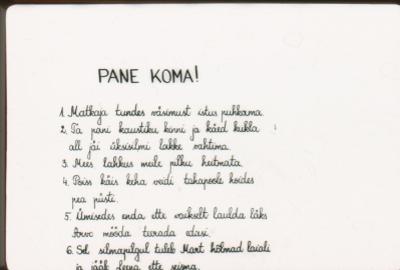 PANE KOMA!
1. Matkaja tundes väsimust istus puhkama.
2. Ta pani kaustiku kinni ja käed kukla
all jäi üksisilmi lakke vahtima.
3. Mees lahkus meile pilku heitmata.
4. Poiss käis keha veidi tahapoole hoides
pea püsti.
5. Ümisedes enda ette vaikselt laulda läks
Arvo mööda teerada edasi.
6. Sel silmapilgul tuleb Mart hõlmad laiali
ja jääb Leena ette seisma.